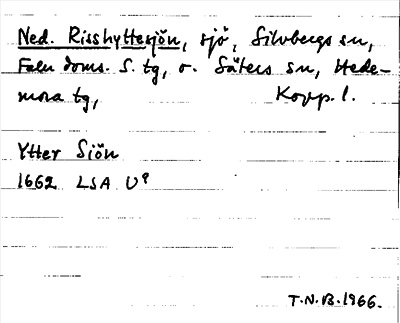 Ned. Risshyttesjön, sjö, Silvbergs sn,
Falu doms. S. tg, o. Säters sn, Hede-
mora tg, Kopp. l.
Ytter Siön
1662 LSA U⁹
T.N.B. 1966.